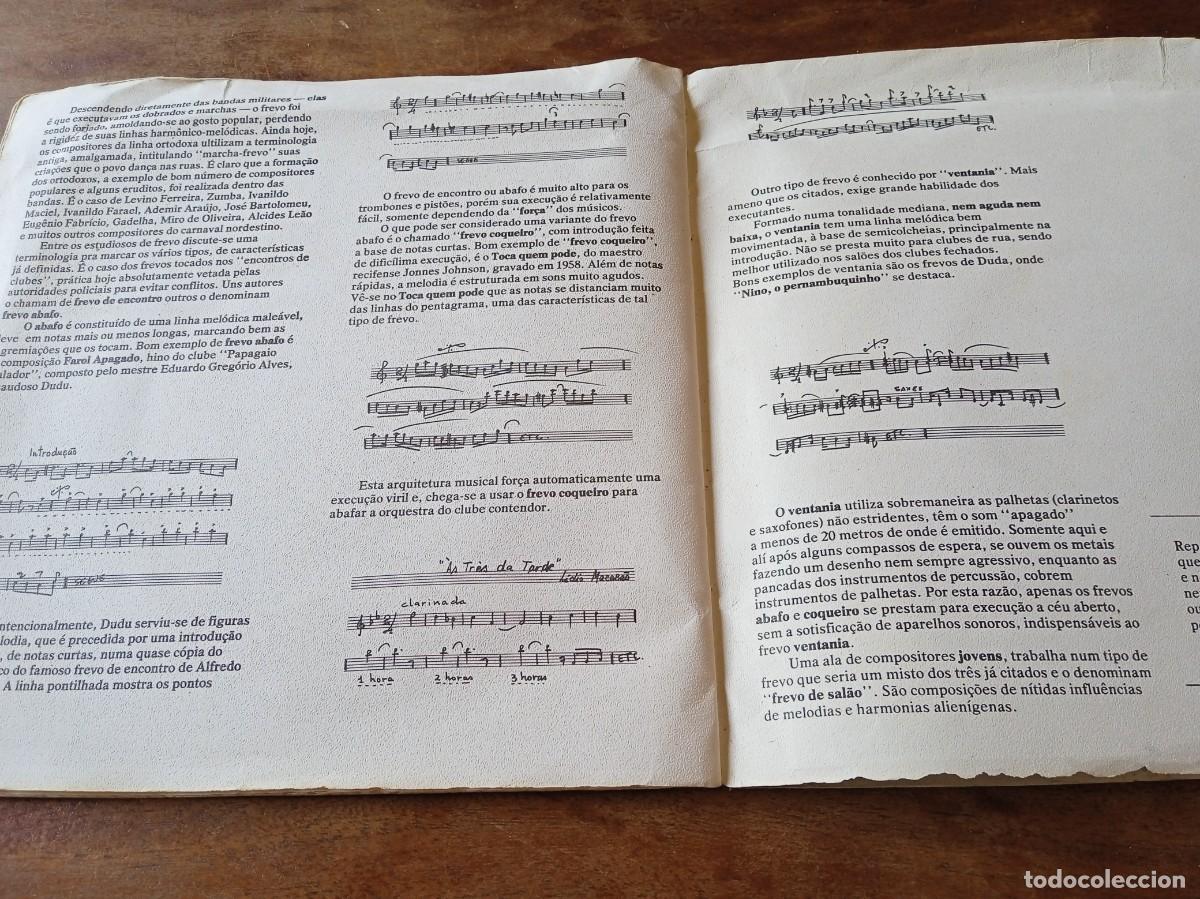 Descendendo diretamente das bandas militares — elas
é que executavam os dobrados e marchas — o frevo foi
sendo forjado, amoldando-se ao gosto popular, perdendo
a rigidez de suas linhas harmônico-melódicas. Ainda hoje,
os compositores da linha ortodoxa ultilizam a terminologia
antiga, amalgamada, intitulando "marcha-frevo" suas
criações que o povo dança nas ruas. É claro que a formação
dos ortodoxos, a exemplo de bom número de compositores
populares e alguns eruditos, foi realizada dentro das
bandas. É o caso de Levino Ferreira, Zumba, Ivanildo
Maciel, Ivanildo Farael, Ademir Araújo, José Bartolomeu,
Eugênio Fabrício, Gadelha, Miro de Oliveira, Alcides Leão
e muitos outros compositores do carnaval nordestino.
Entre os estudiosos de frevo discute-se uma
terminologia pra marcar os vários tipos, de características
já definidas. É o caso dos frevos tocados nos "encontros de
clubes", prática hoje absolutamente vetada pelas
autoridades policiais para evitar conflitos. Uns autores
o chamam de frevo de encontro outros o denominam
frevo abafo.
O abafo é constituído de uma linha melódica maleável,
leve em notas mais ou menos longas, marcando bem as
agremiações que os tocam. Bom exemplo de frevo abafo é
composição Farol Apagado, hino do clube "Papagaio
lador", composto pelo mestre Eduardo Gregório Alves,
audoso Dudu.
Introdução
SEGUE
ntencionalmente, Dudu serviu-se de figuras
lodia, que é precedida por uma introdução
, de notas curtas, numa quase cópia do
co do famoso frevo de encontro de Alfredo
A linha pontilhada mostra os pontos
SEGUE
O frevo de encontro ou abafo é muito alto para os
trombones e pistões, porém sua execução é relativamente
fácil, somente dependendo da "força" dos músicos.
O que pode ser considerado uma variante do frevo
abafo é o chamado "frevo coqueiro", com introdução feita
a base de notas curtas. Bom exemplo de "frevo coqueiro",
de dificílima execução, é o Toca quem pode, do maestro
recifense Jonnes Johnson, gravado em 1958. Além de notas
rápidas, a melodia é estruturada em sons muito agudos.
Vê-se no Toca quem pode que as notas se distanciam muito
das linhas do pentagrama, uma das características de tal
tipo de frevo.
ETC.
Esta arquitetura musical força automaticamente uma
execução viril e, chega-se a usar o frevo coqueiro para
abafar a orquestra do clube contendor.
"Às Três da Tarde"
Lídio Macacão
clarinada
ETC.
1 hora 2 horas 3 horas
ETC.
Outro tipo de frevo é conhecido por "ventania". Mais
ameno que os citados, exige grande habilidade dos
executantes.
Formado numa tonalidade mediana, nem aguda nem
baixa, o ventania tem uma linha melódica bem
movimentada, à base de semicolcheias, principalmente na
introdução. Não se presta muito para clubes de rua, sendo
melhor utilizado nos salões dos clubes fechados.
Bons exemplos de ventania são os frevos de Duda, onde
"Nino, o pernambuquinho" se destaca.
SAXES
ETC.
O ventania utiliza sobremaneira as palhetas (clarinetos
e saxofones) não estridentes, têm o som "apagado"
a menos de 20 metros de onde é emitido. Somente aqui e
alí após alguns compassos de espera, se ouvem os metais
fazendo um desenho nem sempre agressivo, enquanto as
pancadas dos instrumentos de percussão, cobrem
instrumentos de palhetas. Por esta razão, apenas os frevos
abafo e coqueiro se prestam para execução a céu aberto,
sem a sotisficação de aparelhos sonoros, indispensáveis ao
frevo ventania.
Uma ala de compositores jovens, trabalha num tipo de
frevo que seria um misto dos três já citados e o denominam
"frevo de salão". São composições de nítidas influências
de melodias e harmonias alienígenas.
Rep
que
e n
ne
ou
po
todocoleccion